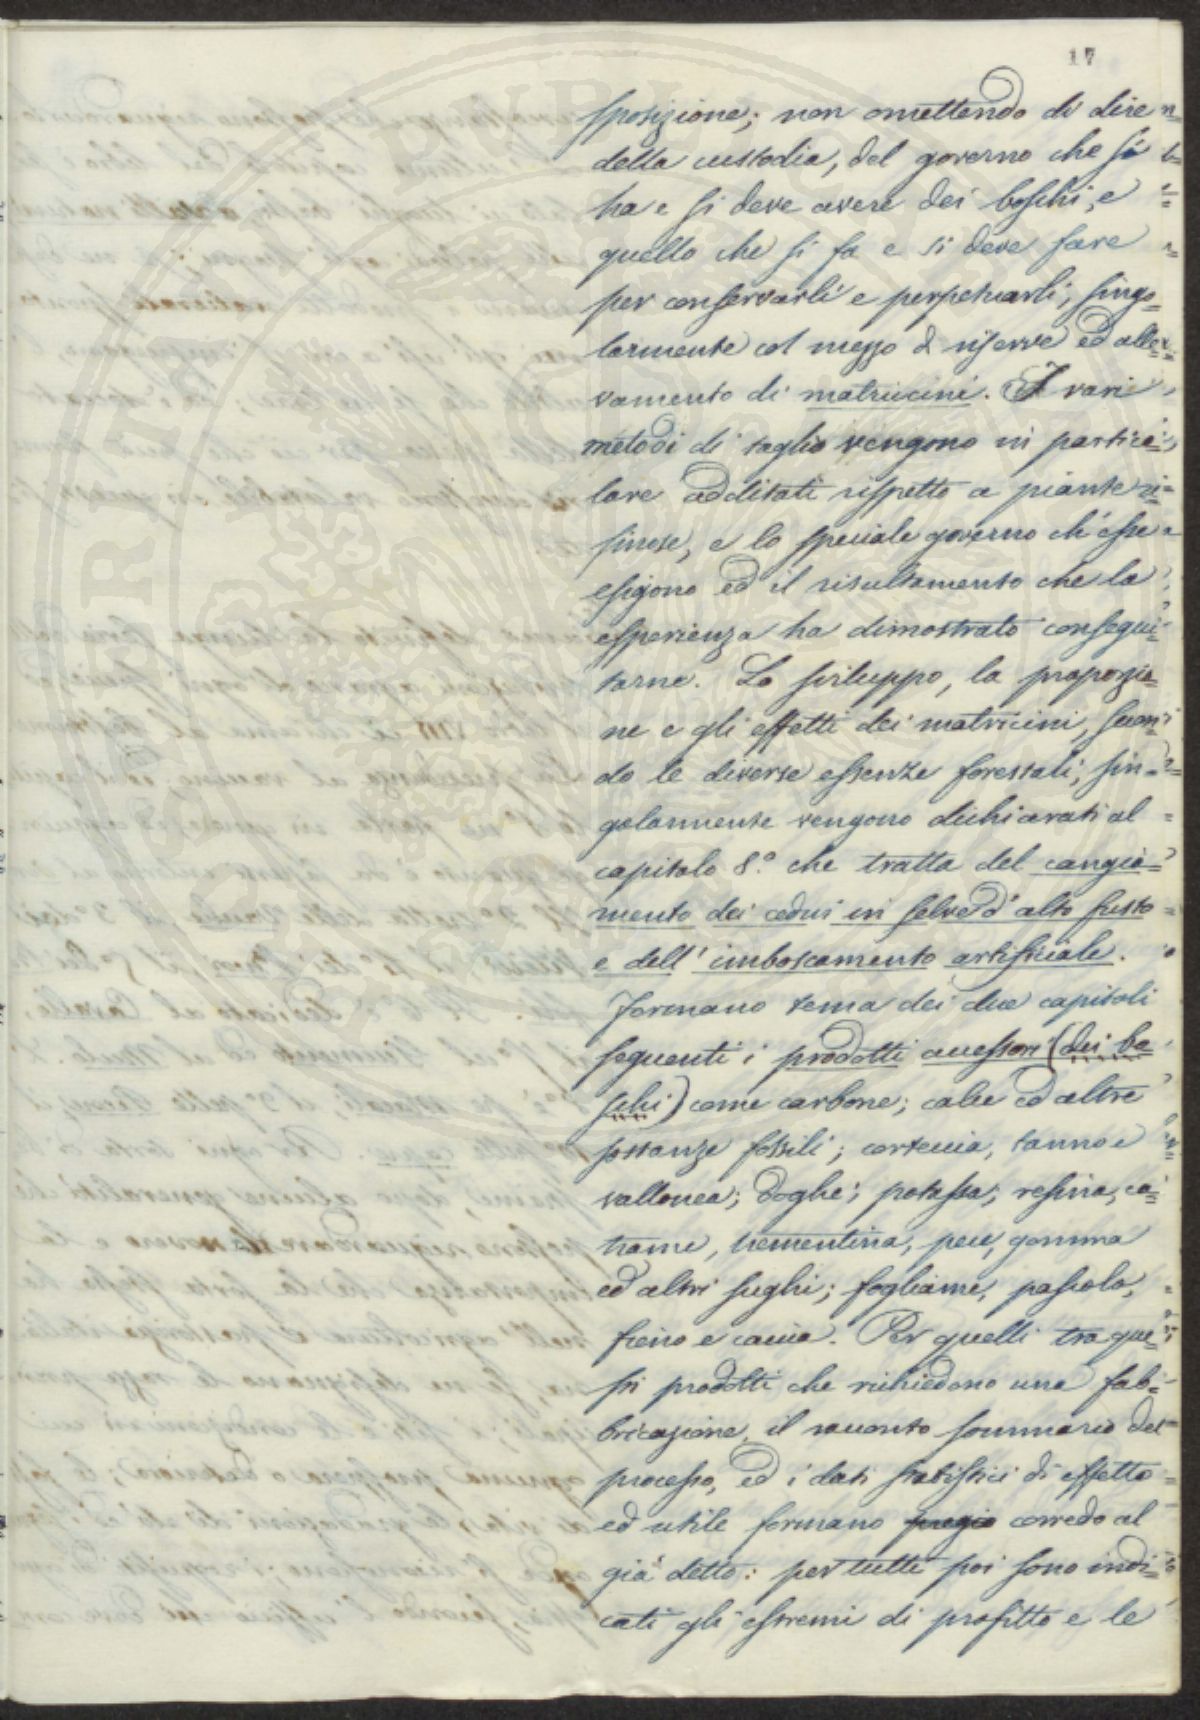 17
sposizione; non omettendo di dire
della custodia, del governo che si
ha e si deve avere dei boschi, e
quello che si fa e si deve fare
per conservarli e perpetuarli, singo=
larmente col mezzo di riserve ed alle=
vamento di matricini. I vari
metodi di taglio vengono in partico=
lare additati rispetto a piante re=
sinose, e lo speciale governo ch'esse
esigono ed il risultamento che la
esperienza ha dimostrato consegui=
tarne. Lo sviluppo, la proporzio=
ne e gli effetti dei matricini, secon=
do le diverse essenze forestali, sin=
golarmente vengono dichiarati al
capitolo 8.° che tratta del cangia=
mento dei cedui in selve d'alto fusto
e dell'imboscamento artificiale.
Formano tema dei due capitoli
seguenti i prodotti accessori (dei bo=
schi) come carbone; calce ed altre
sostanze fossili; corteccia, tanno e
vallonea; doghe; potassa; resina, ca=
trame, trementina, pece, gomma
ed altri sughi; fogliame, pascolo,
fieno e caccia. Per quelli tra que=
sti prodotti che richiedono una fab=
bricazione, il racconto sommario del
processo, ed i dati statistici di effetto
ed utile formano pregio corredo al
già detto: per tutti poi sono indi=
cati gli estremi di profitto e le